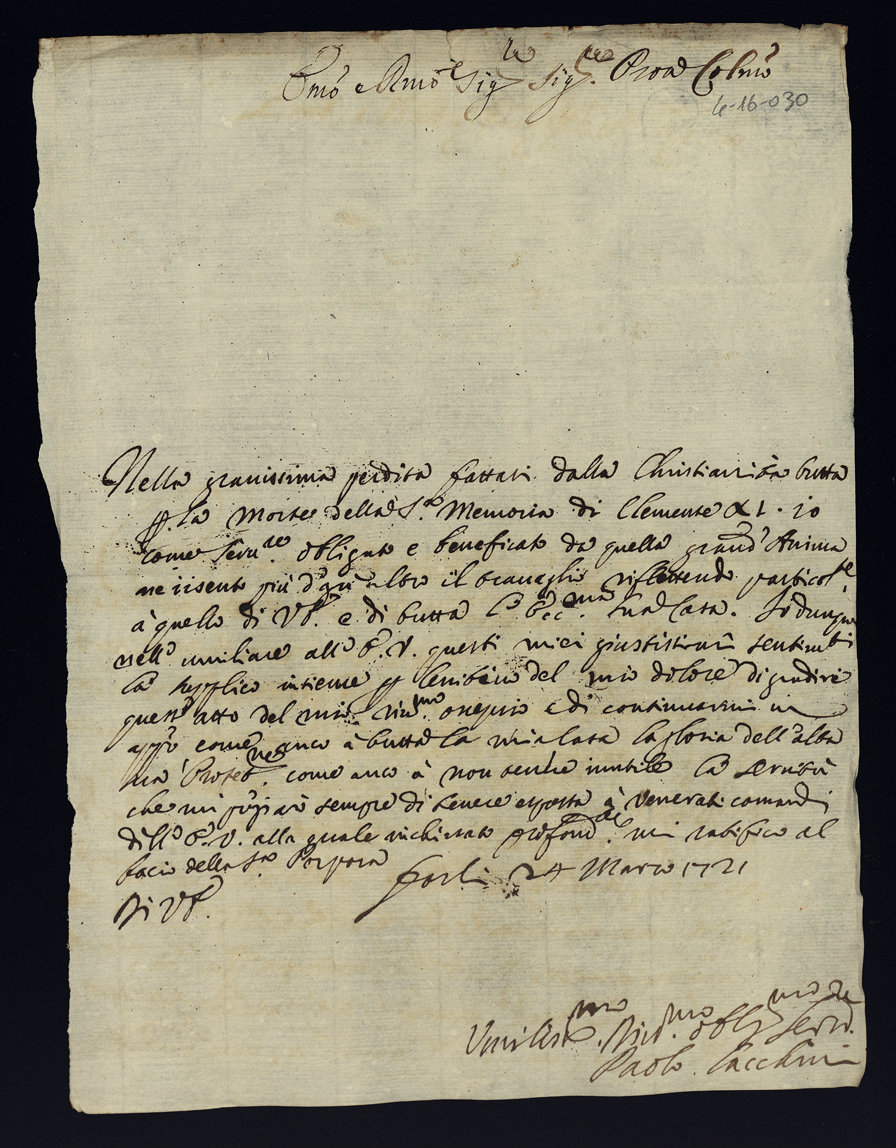 Emo e Rmo Sigre Sigre Pron Colmo
4-16-030
Nella gravissima perdita fattasi dalla Christianità tutta
p. la morte della Sta. Memoria di Clemente XI. io
come Servre. obligato e beneficato da quella grand' Anima
ne risento più d'ogn' altro il travaglio riflettendo particolte.
à quello di VE. e di tutta l' Eccma. sua Casa. Io dunque
nell' umiliare all' E.V. questi miei giustissimi sentimti
la supplico insieme p lenitivo del mio dolore di gradire
quest' atto del mio rivmo ossequio e di continuarmi in
appo come anco à tutta la mia Casa la gloria dell' alta
sua Protetne. come anco à non tenere inutile la servitù
che mi pregiarò sempre di tenere esposta à Venerati comandi
dell' E.V. alla quale inchinato profondte. mi ratifico al
bacio della Sa. Porpora
Di VE.
Forlì 24 Marzo 1721
Umilismo. Divmo. oblgmo Servre.
Paolo